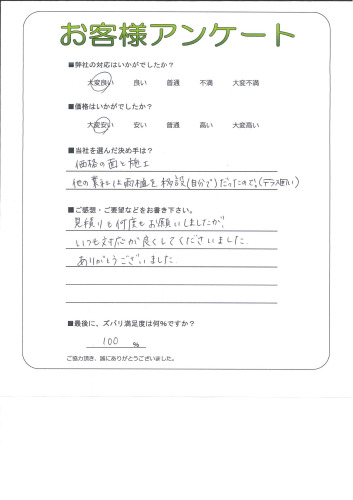 お客様アンケート
■弊社の対応はいかがでしたか？
大変良い 良い 普通 不満 大変不満
■価格はいかがでしたか？
大変安い 安い 普通 高い 大変高い
■当社を選んだ決め手は？
価格の面と施工
他の業社は雨樋を移設(自分で)だったので!(テラス囲い)
■ご感想・ご要望などをお書き下さい。
見積りも何度もお願いしましたが
いつも対応が良くしてくださいました
ありがとうございました
■最後に、ズバリ満足度は何％ですか？
100 %
ご協力頂き、誠にありがとうございました。